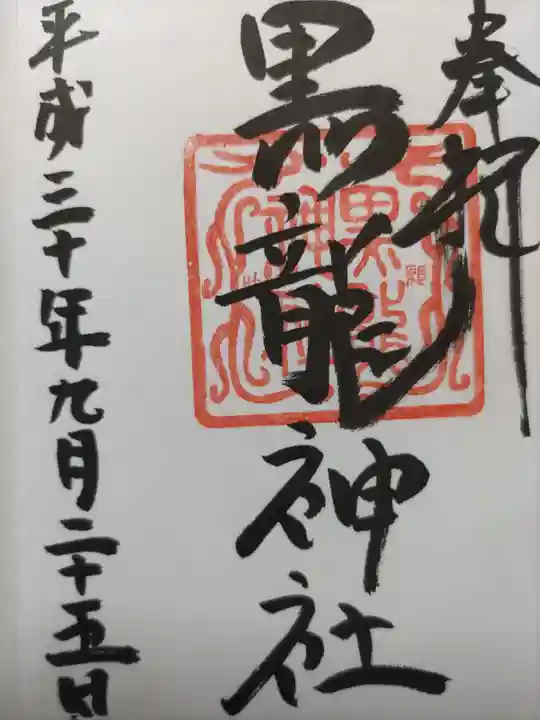 奉拝
黒龍神社
平成三十年九月二十五日